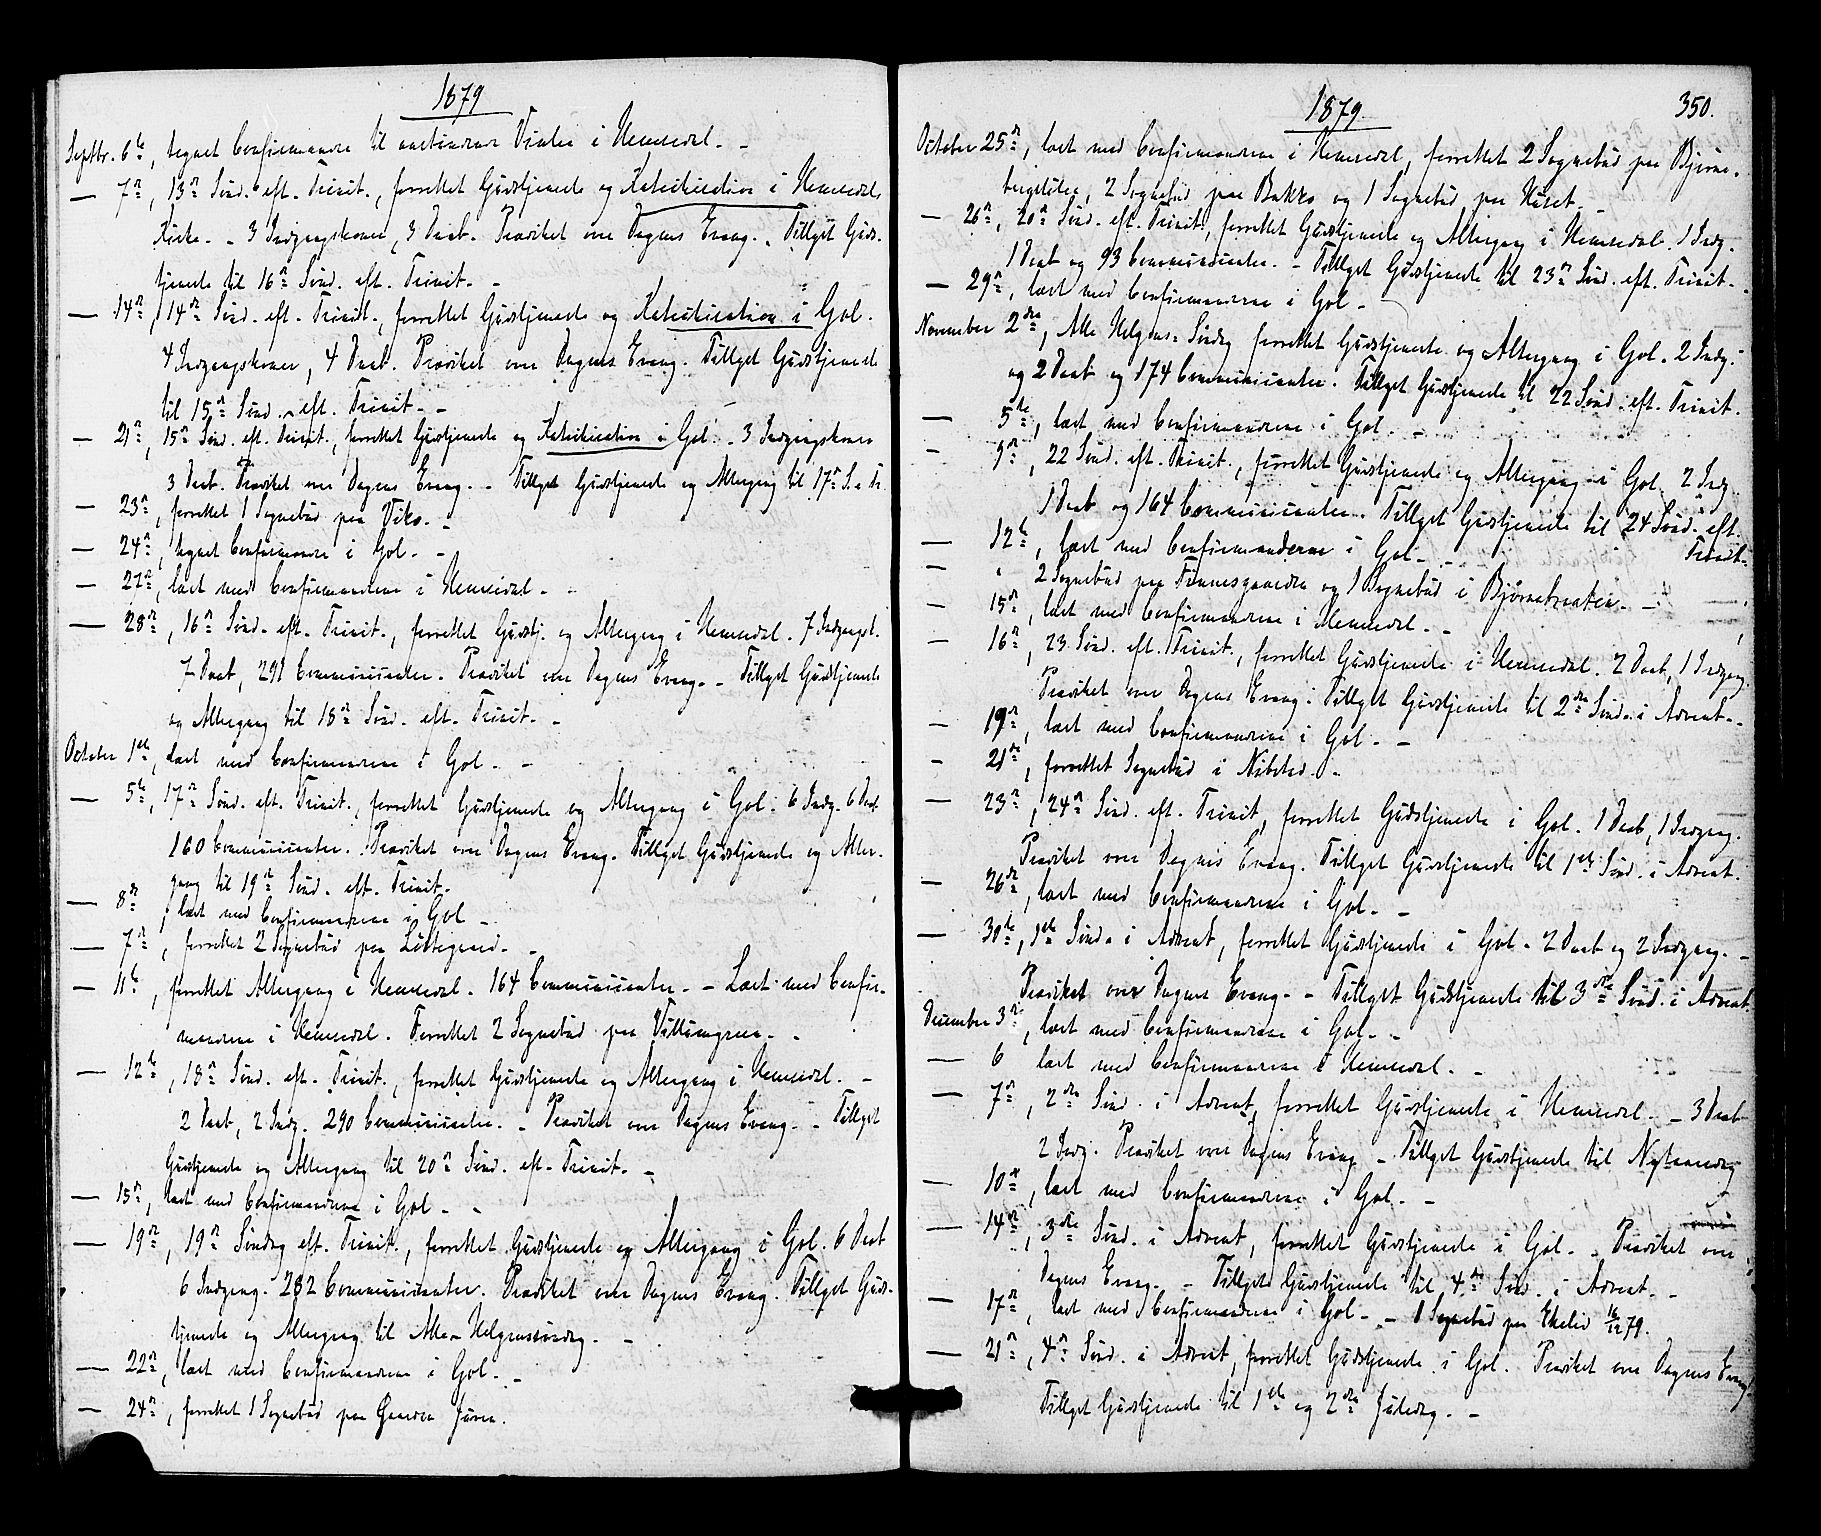 1879
Septbr. 6te, tegnet Confirmander til anstundende Vinter i Hemsedal. -
— 7de, 13de Sønd. eft. Trinit., forrettet Gudstjeneste og Katechisation i Hemsedals
Kirke. - 3 Indgangskoner, 3 Daab. Prædiket over Dagens Evang. - Tillyst Guds-
tjeneste til 16de Sønd. eft. Trinit. -
— 14de, 14de Sønd. eft. Trinit., forrettet Gudstjeneste og Katechisation i Gol.
4 Indgangskoner, 4 Daab. Prædiket over Dagens Evang. Tillyst Gudstjeneste
til 15de Sønd. eft. Trinit. -
— 21de, 15de Sønd. eft. Trinit., forrettet Gudstjeneste og Katechisation i Gol. - 3 Indgangskoner
3 Daab. Prædiket over Dagens Evang. - Tillyst Gudstjeneste og Altergang til 17de S. e. Tr.
— 23de, forrettet 1 Sognebud paa Viko. -
— 24de, tegnet Confirmander i Gol. -
— 27de, læst med Confirmanderne i Hemsedal. -
— 28de, 16de Sønd. eft. Trinit., forrettet Gudstj. og Altergang i Hemsedal. 7 Indgangsk.
7 Daab, 291 Communicanter. Prædiket over Dagens Evang. - Tillyst Gudstjeneste
og Altergang til 18de Sønd. eft. Trinit. -
October 1ste, læst med Confirmanderne i Gol. -
— 5te, 17de Sønd. eft. Trinit., forrettet Gudstjeneste og Altergang i Gol. 6 Indg. 6 Daab
160 Communicanter. Prædiket over Dagens Evang. Tillyst Gudstjeneste og Alter-
gang til 19de Sønd. eft. Trinit.
— 8de, læst med Confirmanderne i Gol -
— 7de, forrettet 2 Sognebud paa -
— 11te, forrettet Altergang i Hemsedal. 164 Communicanter. - Læst med Confir-
manderne i Hemsedal. Forrettet 2 Sognebud paa -
— 12te, 18de Sønd. eft. Trinit., forrettet Gudstjeneste og Altergang i Hemsedal. -
2 Daab, 2 Indg. 290 Communicanter. - Prædiket over Dagens Evang. - Tillyst
Gudstjeneste og Altergang til 20de Sønd. eft. Trinit. -
— 15de, læst med Confirmanderne i Gol. -
— 19de, 19de Søndag eft. Trinit., forrettet Gudstjeneste og Altergang i Gol. 6 Daab
6 Indgang. 282 Communicanter. Prædiket over Dagens Evang. Tillyst Guds-
tjeneste og Altergang til Alle-Helgenssøndag. -
— 22de, læst med Confirmanderne i Gol. -
— 24de, forrettet 1 Sognebud paa
1879.
350.
October 25de, læst med Confirmanderne i Hemsedal, forrettet 2 Sognebud paa Bjørne-
bergslien, 2 Sognebud paa Bakko og 1 Sognebud paa Huset. -
— 26de, 20de Sønd. eft. Trinit., forrettet Gudstjeneste og Altergang i Hemsedal. 1 Indg.
1 Daab og 93 Communicanter. - Tillyst Gudstjeneste til 23de Sønd. eft. Trinit. -
— 29de, læst med Confirmanderne i Gol -
November 2den, Alle Helgens-Søndag forrettet Gudstjeneste og Altergang i Gol. 2 Indg.
og 2 Daab og 174 Communicanter. Tillyst Gudstjeneste til 22 Sønd. eft. Trinit.
— 5te, læst med Confirmanderne i Gol. -
— 9de, 22 Sønd. eft. Trinit., forrettet Gudstjeneste og Altergang i Gol. 2 Indg.
1 Daab og 164 Communicanter. Tillyst Gudstjeneste til 24 Sønd. eft.
Trinit.
— 12te, læst med Confirmanderne i Gol. -
— 2 Sognebud paa Finnesgaarden og 1 Sognebud i -
— 15de, læst med Confirmanderne i Hemsedal. -
— 16de, 23 Sønd. eft. Trinit., forrettet Gudstjeneste i Hemsedal. 2 Daab, 1 Indgang.
Prædiket over Dagens Evang. Tillyst Gudstjeneste til 2den Sønd. i Advent. -
— 19de, læst med Confirmanderne i Gol. -
— 21de, forrettet Sognebud i Nibstad. -
— 23de, 24de Sønd. eft. Trinit, forrettet Gudstjeneste i Gol. 1 Daab, 1 Indgang.
Prædiket over Dagens Evang. Tillyst Gudstjeneste til 1ste Sønd. i Advent.
— 26de, læst med Confirmanderne i Gol. -
— 30te, 1ste Sønd. i Advent, forrettet Gudstjeneste i Gol. 2 Daab og 2 Indgang. -
Prædiket over Dagens Evang. - Tillyst Gudstjeneste til 3die Sønd. i Advent.
December 3die, læst med Confirmanderne i Gol. -
— 6 læst med Confirmanderne i Hemsedal. -
— 7de, 2den Sønd. i Advent, forrettet Gudstjeneste i Hemsedal. - 3 Daab
2 Indg. Prædiket over Dagens Evang - Tillyst Gudstjeneste til Nytaarsdag
— 10de, læst med Confirmanderne i Gol. -
— 14de, 3die Sønd. i Advent, forrettet Gudstjeneste i Gol. - Prædiket over
Dagens Evang. - Tillyst Gudstjeneste til 4de Sønd. i Advent. -
— 17de, læst med Confirmanderne i Gol. - 1 Sognebud paa Ekelid 16/12 79.
— 21de, 4de Sønd. i Advent, forrettet Gudstjeneste i Gol. Prædiket over Dagens Evang.
Tillyst Gudstjeneste til 1ste og 2den Juledag. -